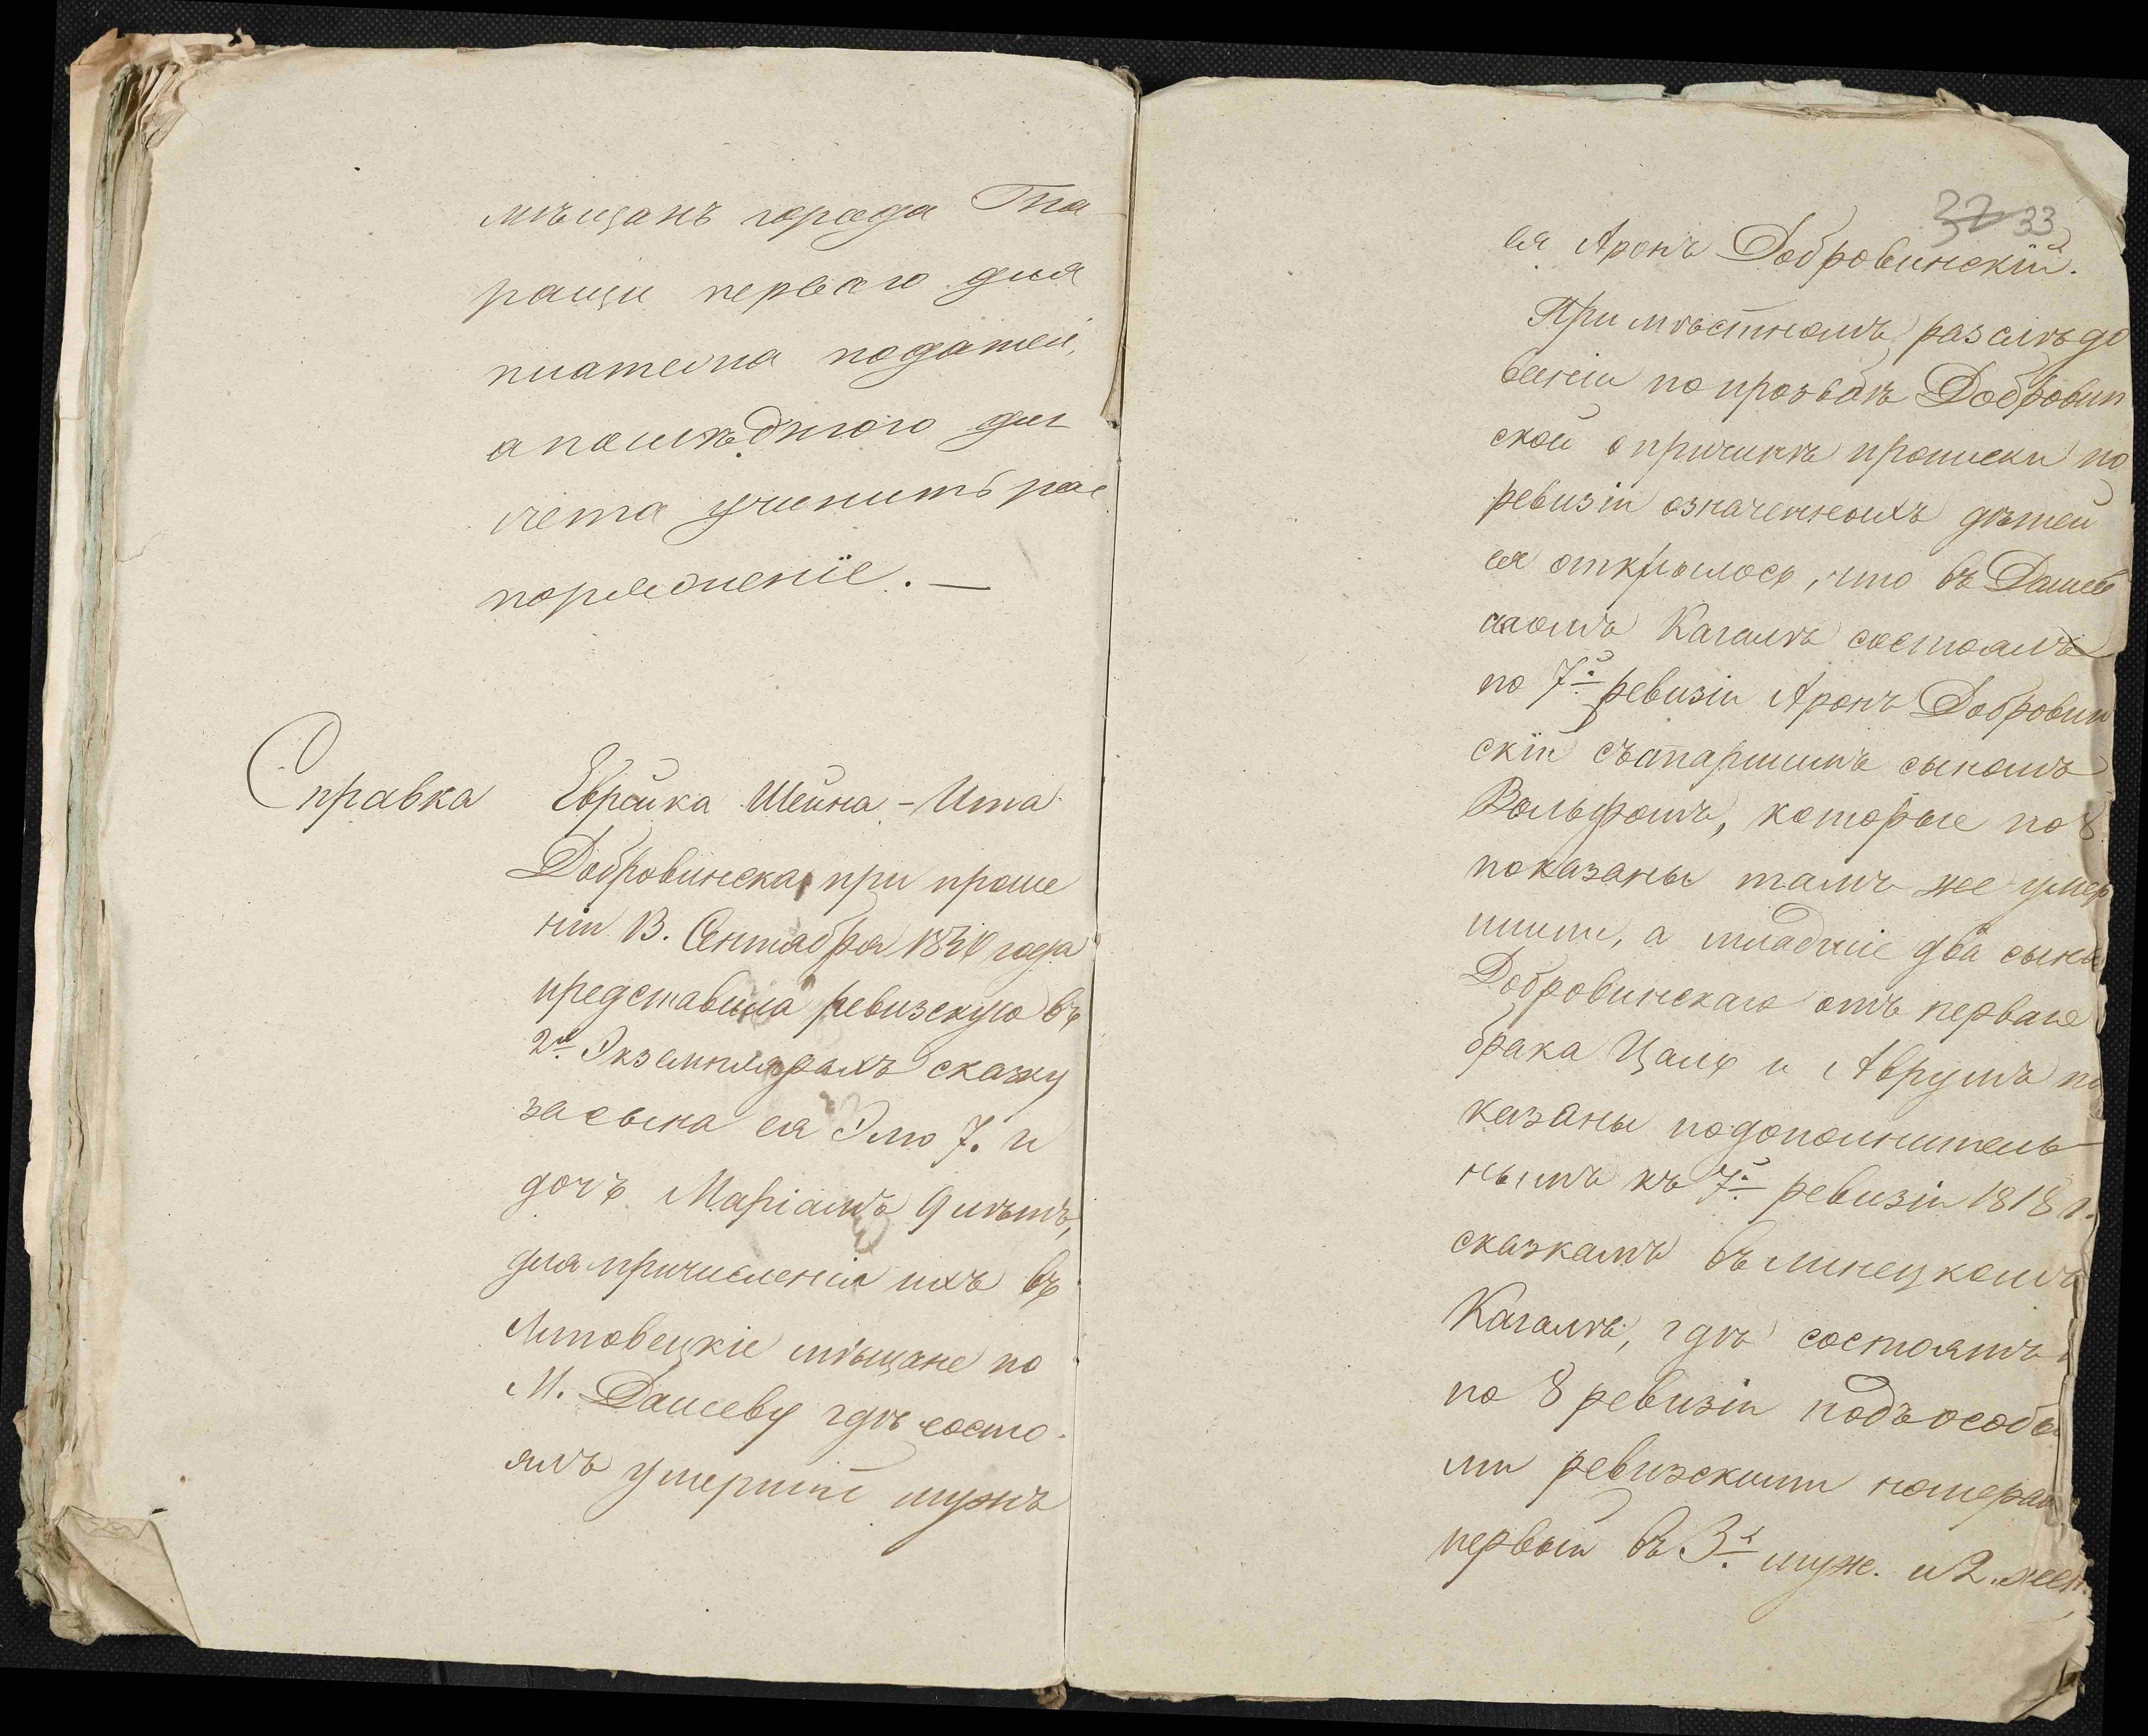 мѣщанъ города Тта
ращи перваго для
платежа податей,
а послѣднюю для
чета учинить рас
поряженіе. —
Справка Еврейка Шейна-Ита
Добровинская при проше
ніи 13. Сентября 1850 года
представила ревизскую въ
2хъ Экземплярахъ сказку
за сына ея Элю 7. и
дочъ Маріамъ 9 лѣтъ,
для причисленія ихъ въ
Липовецкіе мѣщане по
М. Дашеву гдѣ состо
ялъ умершій мужъ
32 33
ея Аронъ Добровинскій.
При мѣстномъ разслѣдо
ваніи по прозьбѣ Добровин
ской о причинѣ прописки по
ревизіи означенныхъ дѣтей
ея открылось, что въ Дашев
скомъ Кагалѣ состоялъ
по 7й ревизіи Аронъ Добровин
скій съ старшимъ сыномъ
Вольфомъ, которые по 8.
показаны тамъ же умер
шими, а младшіе два сына
Добровинскаго отъ перваго
брака Цаль и Аврумъ по
казаны по дополнитель
нымъ къ 7й ревизіи 1818 г.
сказкамъ въ линецкомъ
Кагалѣ, гдѣ состоятъ и
по 8 ревизіи подъ особы
ми ревизскими номерам
первый въ 3х муж. и 2. жен.